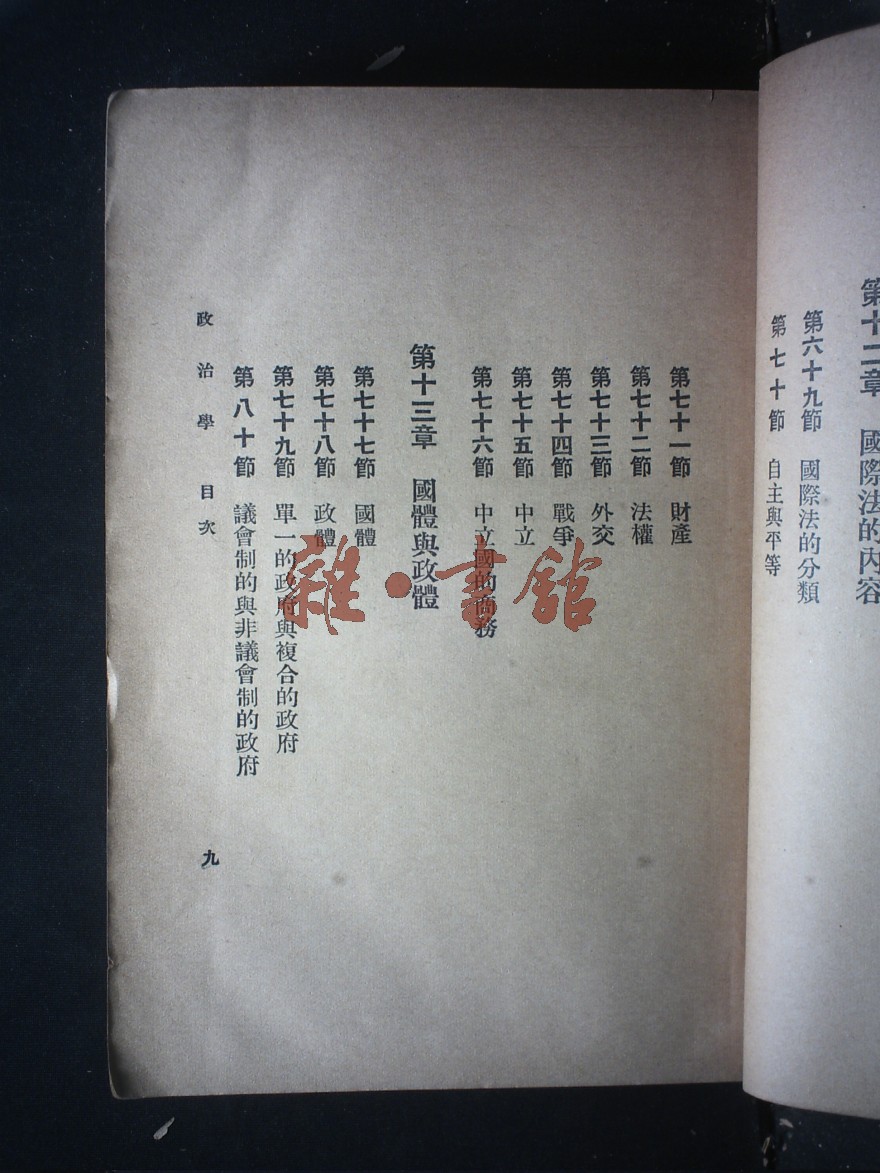 第十二章　國際法的內容
第六十九節　國際法的分類
第七十節　自主與平等
第七十一節　財產
第七十二節　法權
第七十三節　外交
第七十四節　戰爭
第七十五節　中立
第七十六節　中立國的商務
第十三章　國體與政體
第七十七節　國體
第七十八節　政體
第七十九節　單一的政府與複合的政府
第八十節　議會制的與非議會制的政府
政治學　目次
九
雜·書館